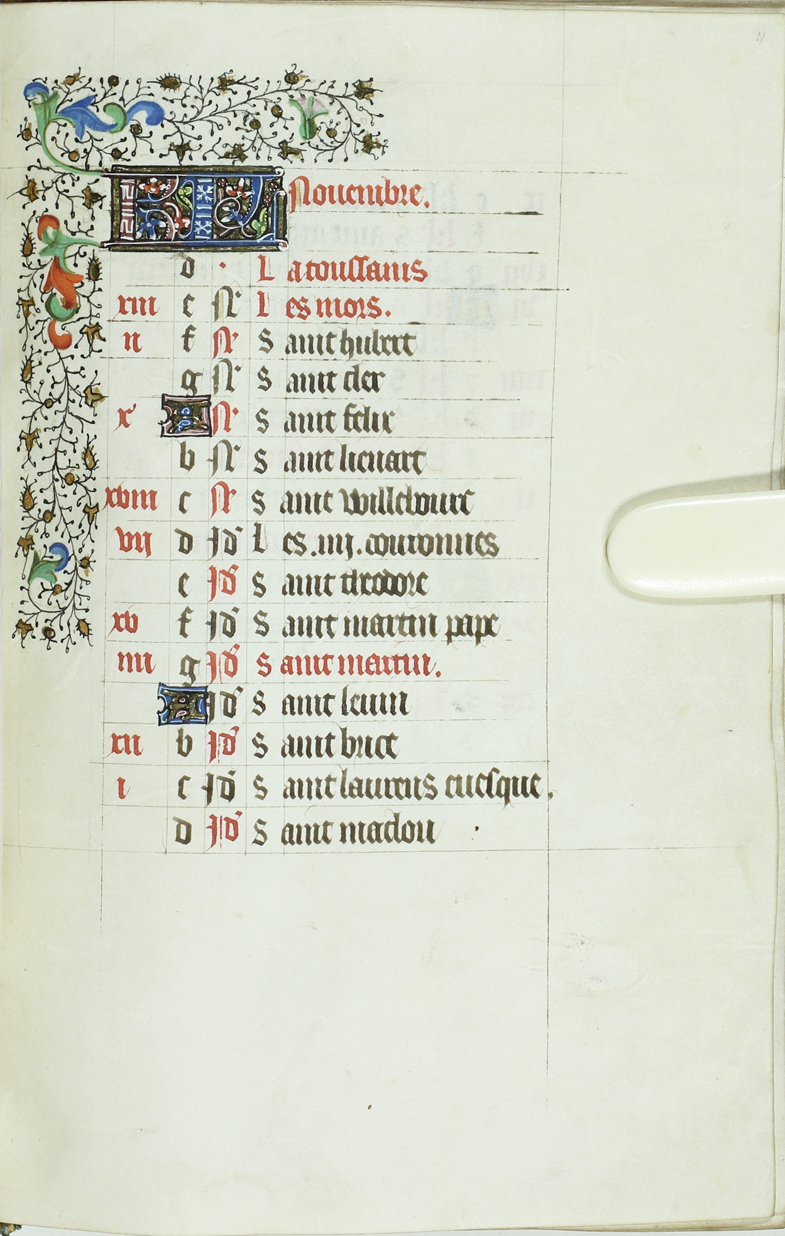 KL Nouembre.
d · La toussains
xiii e N Les mors.
ii f N Saint hubert
g N Saint cler
x A N Saint felix
b N Saint lienart
xviii c N Saint willeboure
vii d Id Les .iiij. couronnes
e Id Saint theodore
xv f Id Saint martin pape
iiii g Id Saint martin.
A Id Saint leuin
xii b Id Saint brice
i c Id Saint laurens euesque.
d Id Saint maclou